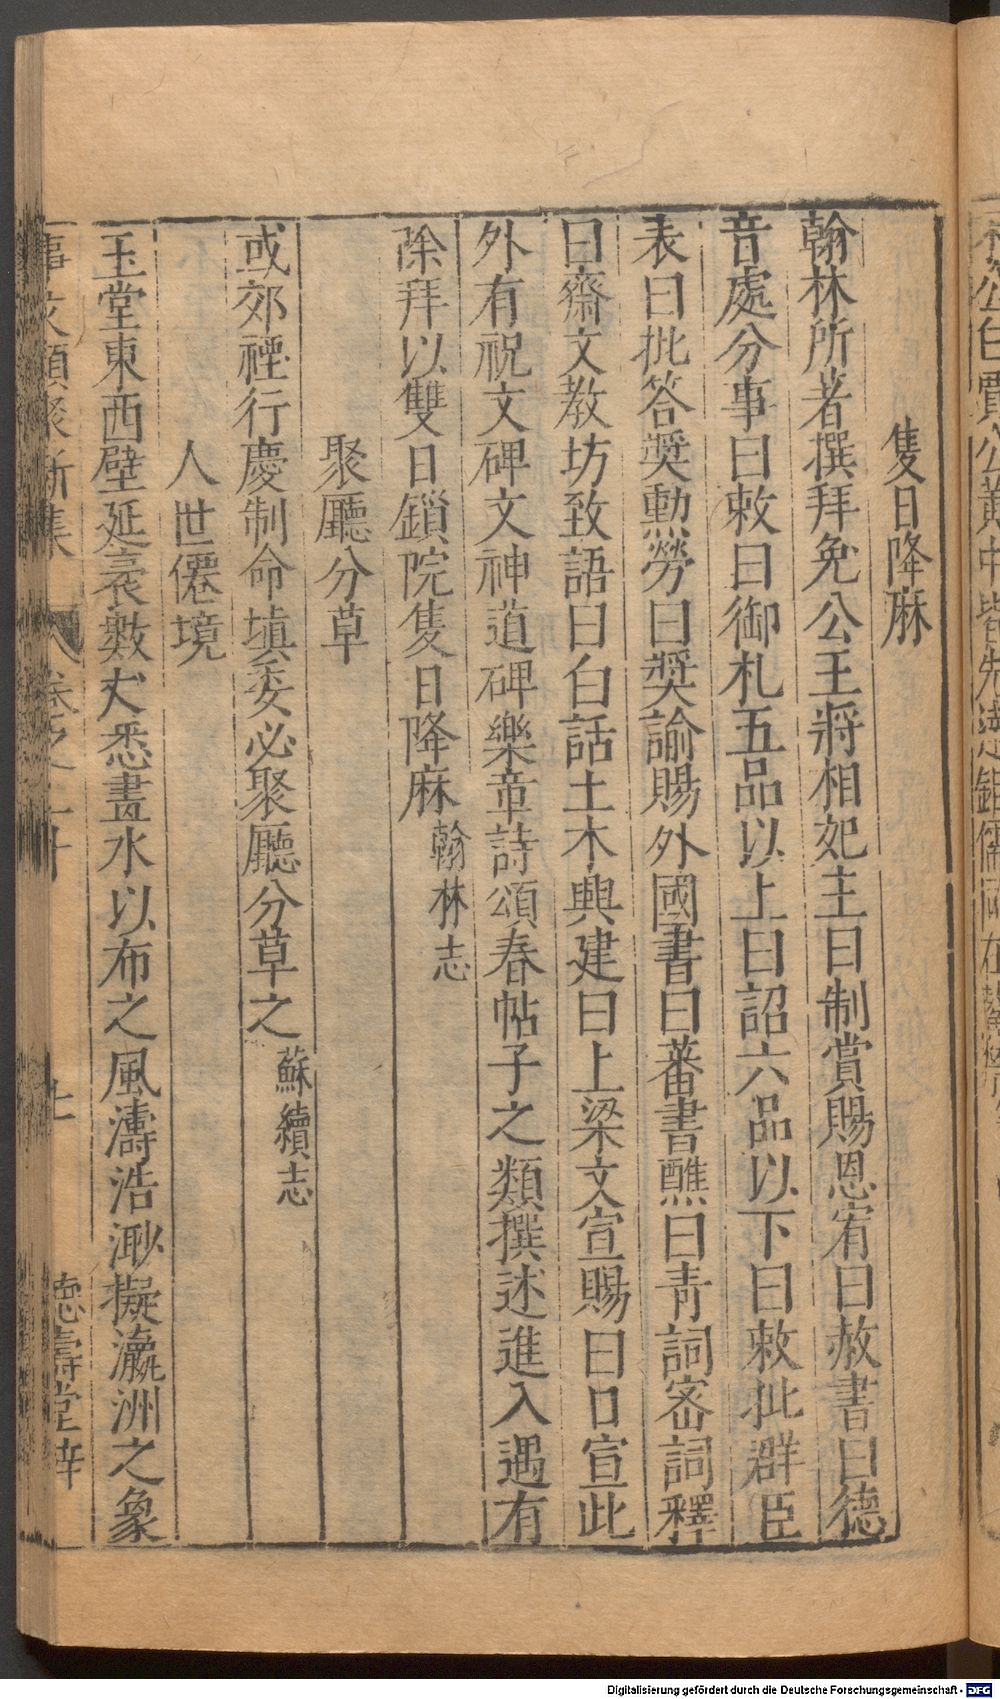 隻日降麻
翰林所著撰拜免公王將相妃主曰制賞賜恩宥曰赦書曰德
音處分事曰敕曰御札五品以上曰詔六品以下曰敕批群臣
表曰批答奬勳勞曰奬諭賜外國書曰蕃書醮曰青詞宻詞釋
曰齋文教坊致語曰白話土木興建曰上梁文宣賜曰口宣此
外有祝文碑文神道碑樂章詩頌春帖子之類撰述進入遇有
除拜以雙日鎖院隻日降麻翰林志
聚廳分草
或郊禋行慶制命填委必聚廳分草之蘇續志
人世僊境
玉堂東西壁延袤數丈悉畫水以布之風濤浩渺擬瀛洲之象
事文類聚新集 卷之二十 七 德壽堂梓
Digitalisierung gefördert durch die Deutsche Forschungsgemeinschaft - DFG